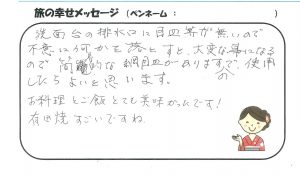 旅の幸せメッセージ (ペンネーム : )
洗面台の排水口に目皿等が無いので
不意に何かを落とすと、大変な事になる
ので 簡易的な網目皿がありますで、使用
したらよいと思います。
お料理とご飯とても美味かったです!
有田焼すごいですね